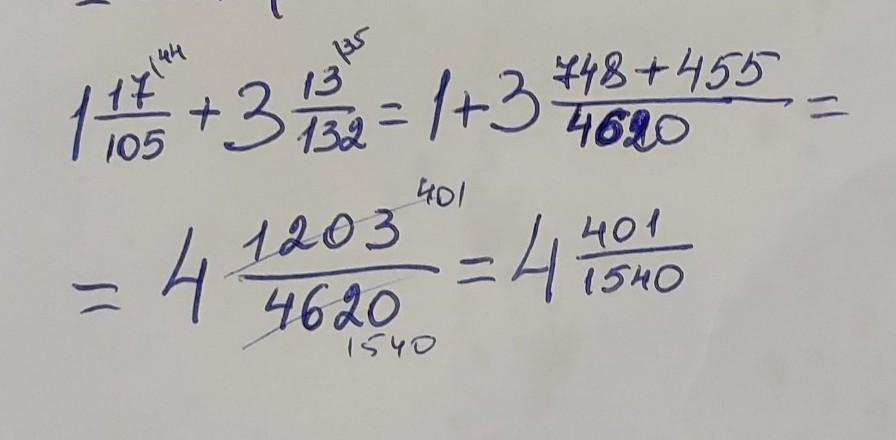 1 17/105 ⁽⁴⁴ + 3 13/132 ⁽³⁵ = 1+3 (748+455)/4620 =
= 4 1203/4620 401 1540 = 4 401/1540